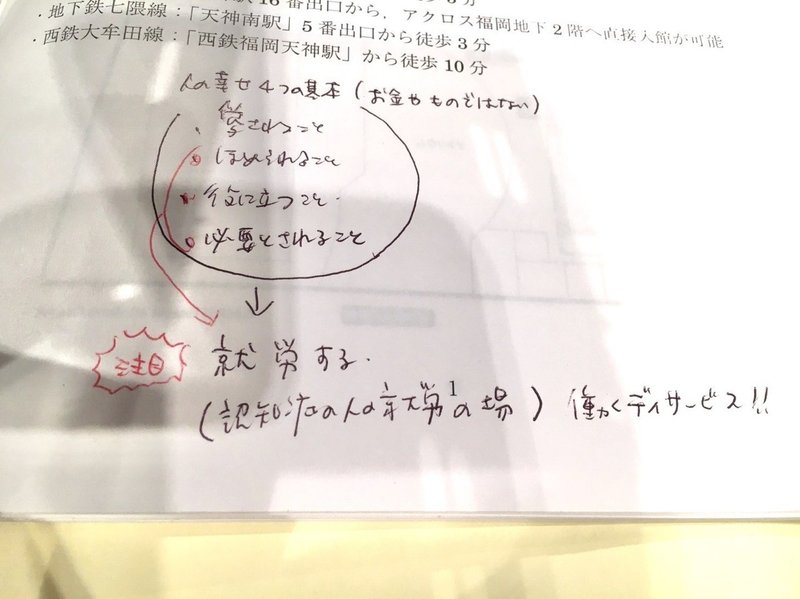 駅」16番出口から，アクロス福岡地下2階へ直接入館が可能
・地下鉄七隈線：「天神南駅」5番出口から徒歩3分
・西鉄大牟田線：「西鉄福岡天神駅」から徒歩10分
人の幸せ4つの基本（お金やものではない）
・愛されること
・ほめられること
・役に立つこと．
・必要とされること
↓
注目
就労する．
（認知症の人の就労の場）働くデイサービス!!
1